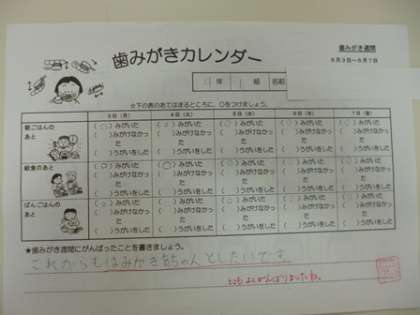 歯みがきカレンダー
歯みがき週間
6月3日～6月7日
年 組 名前
☆下の表のあてはまるところに、○をつけましょう。
3日(月) 4日(火) 5日(水) 6日(木) 7日(金)
朝ごはんのあと
(○)みがいた (○)みがいた (○)みがいた (○)みがいた (○)みがいた
( )みがけなかった ( )みがけなかった ( )みがけなかった ( )みがけなかった ( )みがけなかった
( )うがいをした ( )うがいをした ( )うがいをした ( )うがいをした ( )うがいをした
給食のあと
(○)みがいた (○)みがいた (○)みがいた (○)みがいた (○)みがいた
( )みがけなかった ( )みがけなかった ( )みがけなかった ( )みがけなかった ( )みがけなかった
( )うがいをした ( )うがいをした ( )うがいをした ( )うがいをした ( )うがいをした
ばんごはんのあと
(○)みがいた (○)みがいた (○)みがいた (○)みがいた (○)みがいた
( )みがけなかった ( )みがけなかった ( )みがけなかった ( )みがけなかった ( )みがけなかった
( )うがいをした ( )うがいをした ( )うがいをした ( )うがいをした ( )うがいをした
★歯みがき週間にがんばったことを書きましょう。
これからもはみがきをちゃんとしたいです。
よくがんばりましたね。